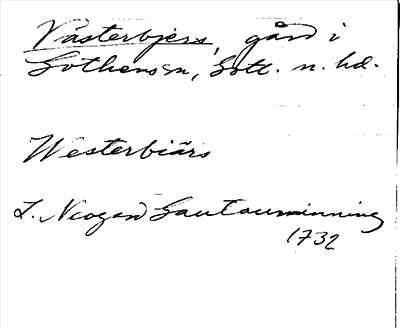 Västerbjers, gård i
Gothems sn, Gotl. n. hd.
Westerbiärs
J. Neogard Gautauminning
1732